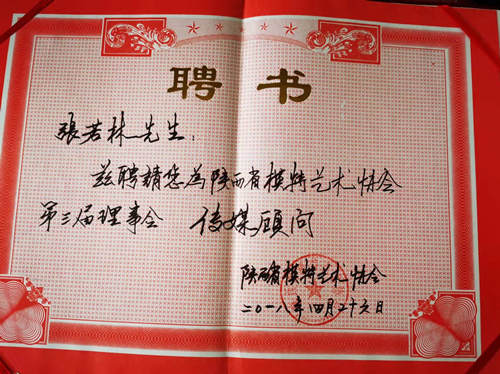 聘书
張若林先生：
兹聘請您為陕西省模特艺术协会
第三届理事会 传媒顾问
陕西省模特艺术协会
二〇一八年四月二十六日